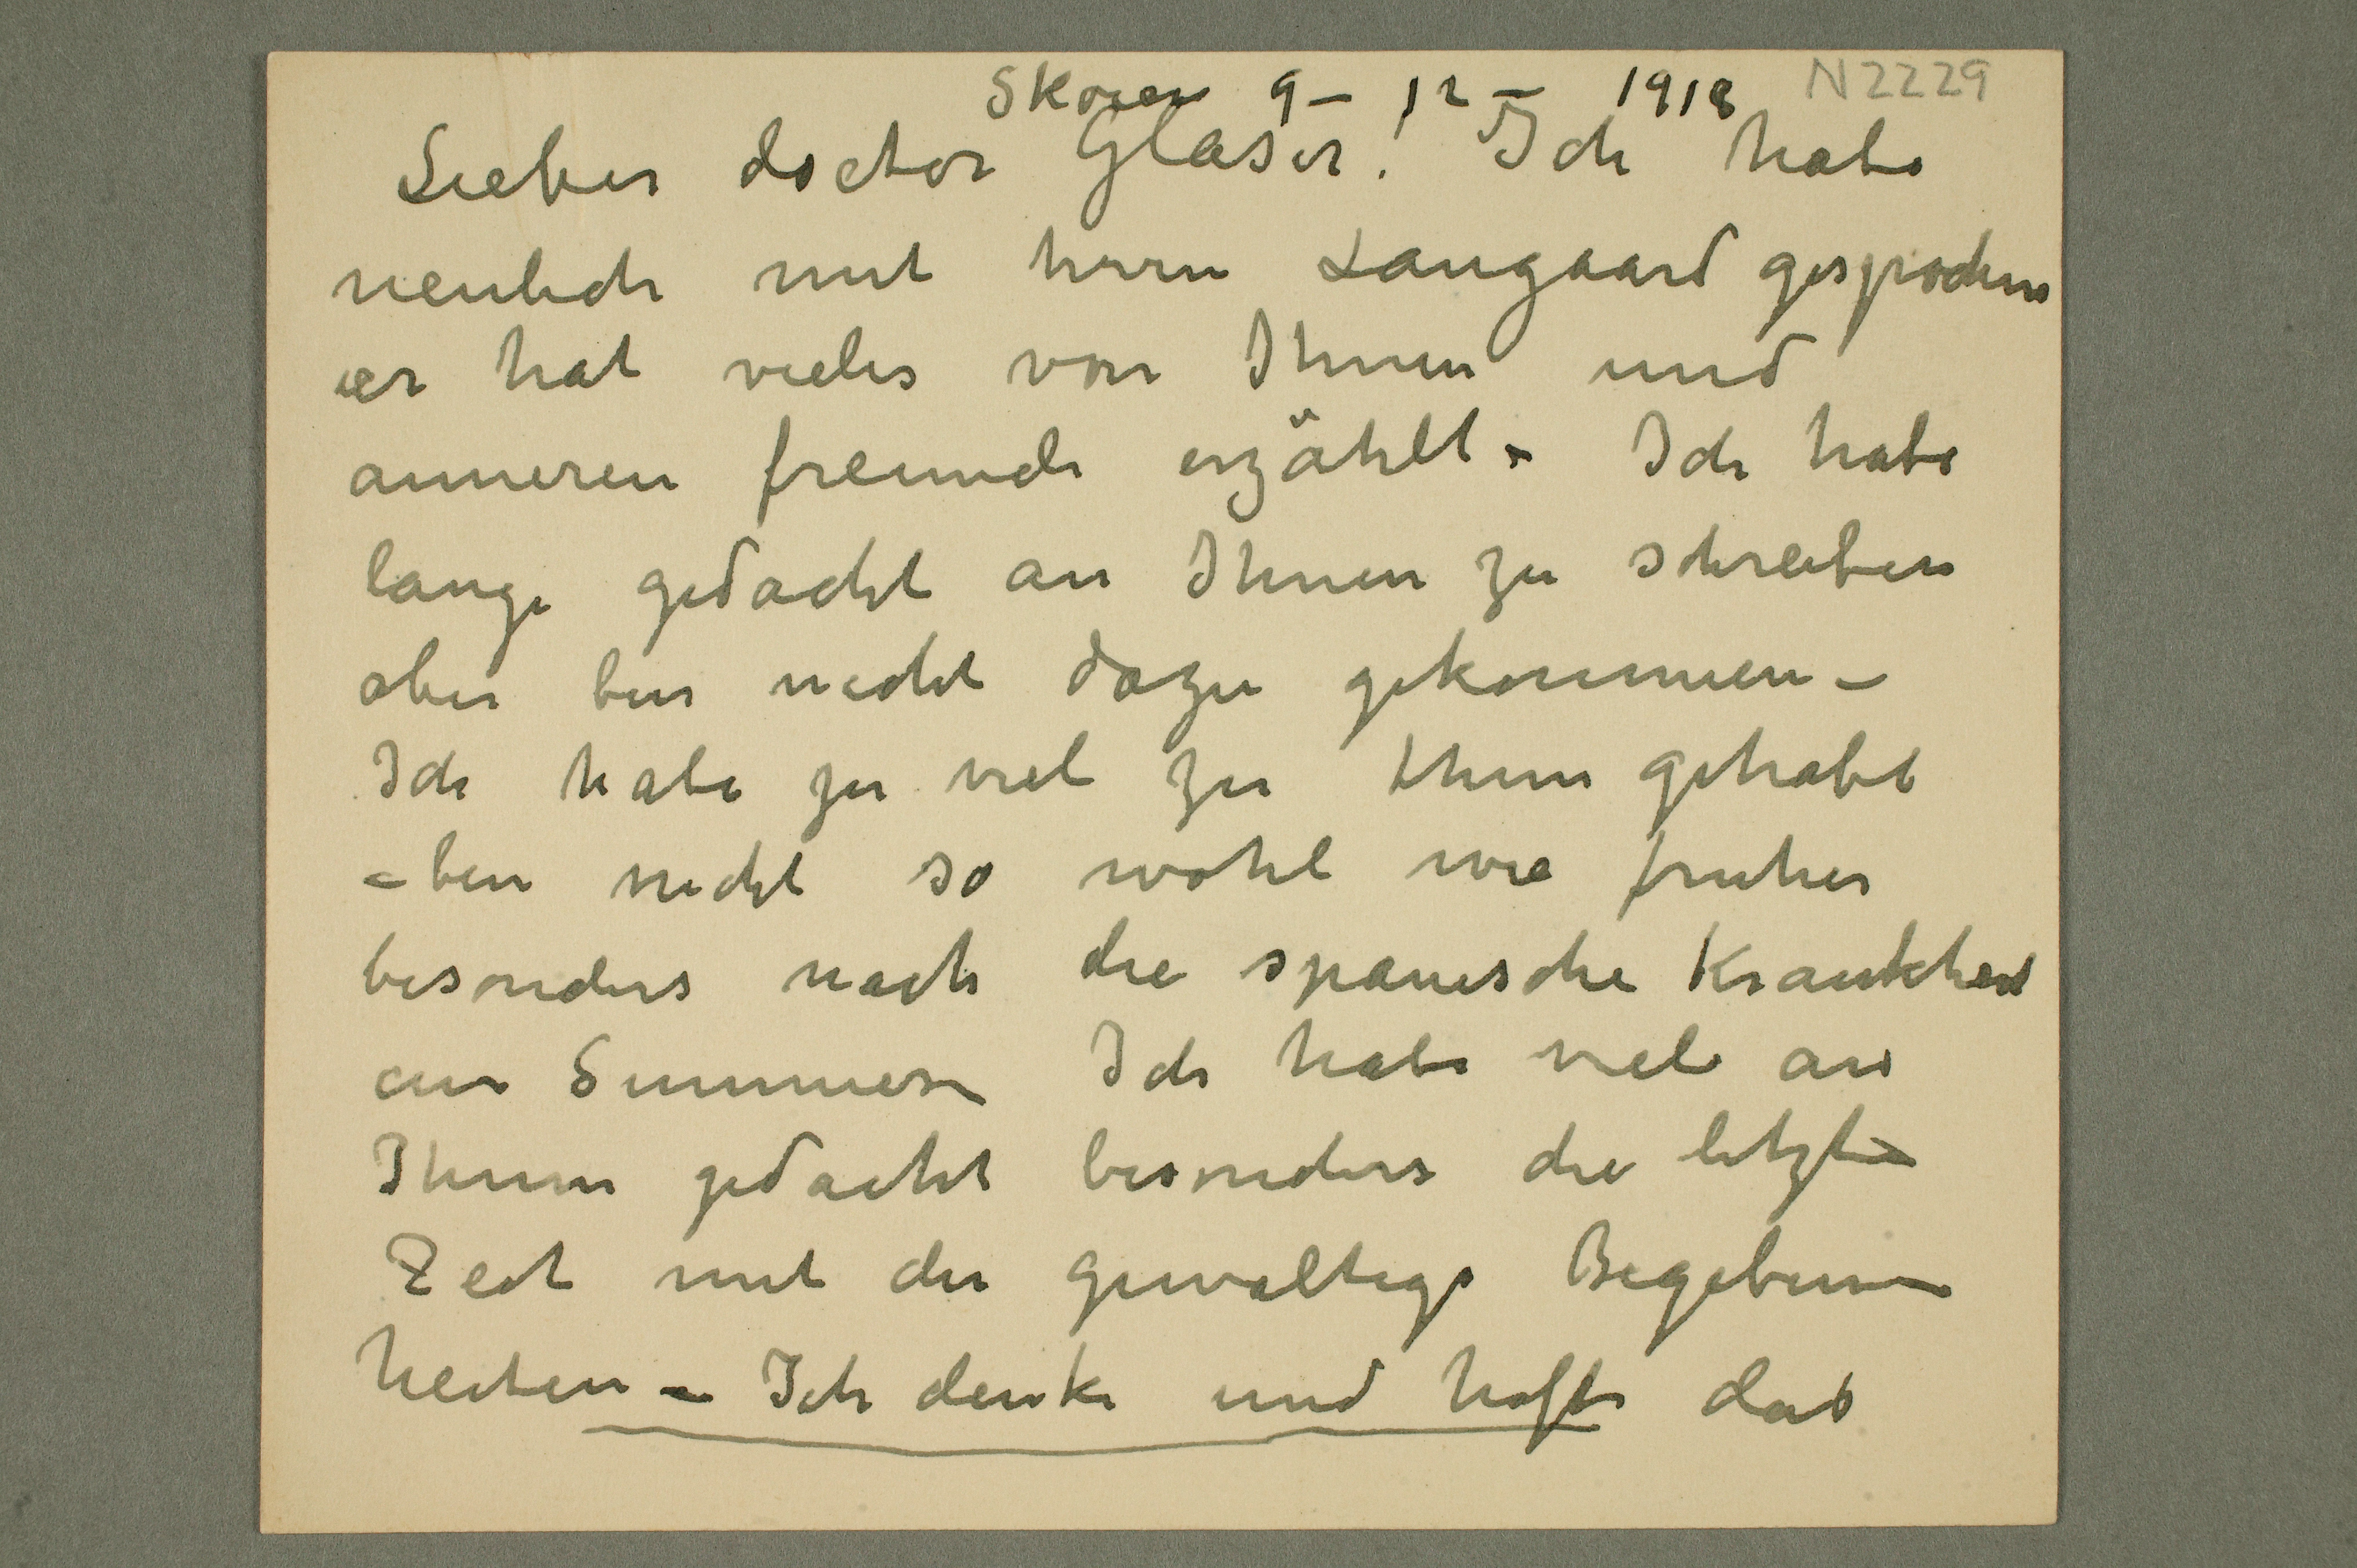 Skøien 9 – 12 – 1918 N2229
Lieber doctor Glaser! Ich habe
neulich mit herrn Langaard gesprochen
er hat vieles von Ihnen und
anneren freunde erzählt – Ich habe
lange gedacht an Ihnen zu schreiben
aber bin nicht dazu gekommen –
Ich habe zu viel zu thun gehabt
– bin nicht so wohl wie fruher
besonders nach die spanische Krankheit
am Summer – Ich habe viel an
Ihnen gedacht besonders die letzte
Zeit mit der gewaltige Begeben-
heiten – Ich denke und hoffe das